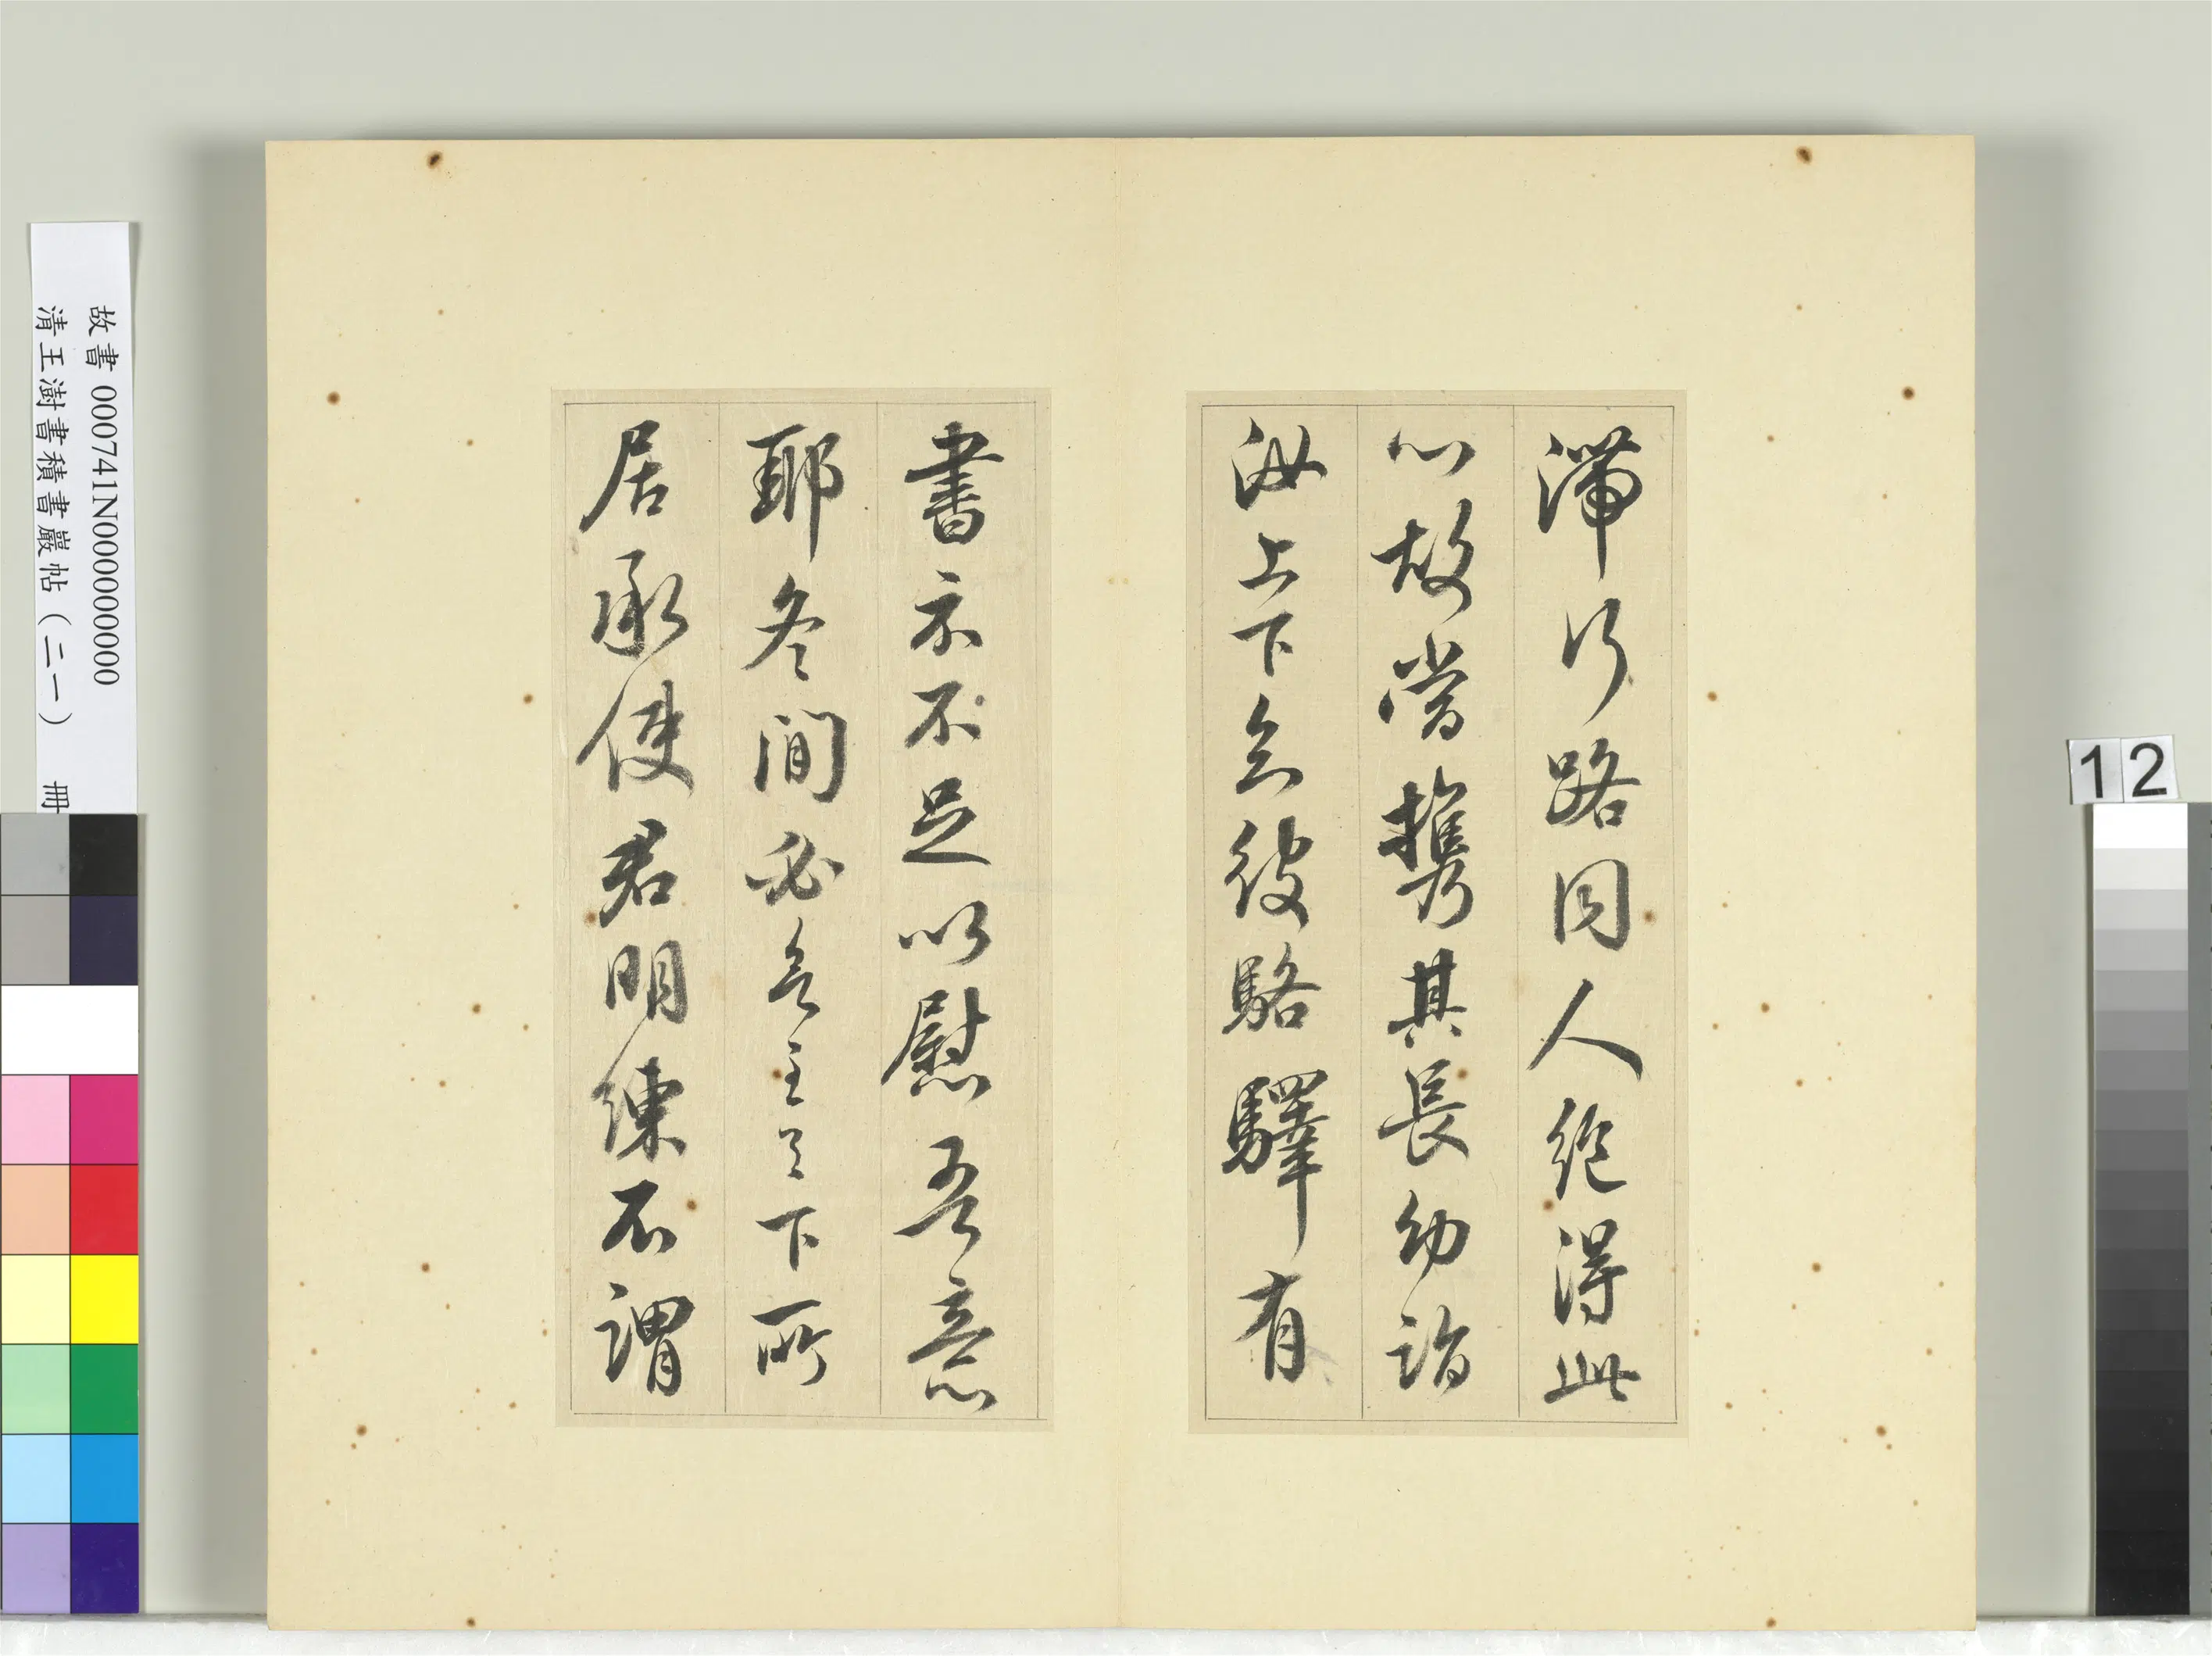 滯行路同人絕得此
心故當攜其長幼詣
汝上下知彼駱驛有
書示不足以慰吾意
耶冬間必下所
居承使君明練不謂
故書 000741N000000000
清王澍書積書巖帖（二一） 冊
12